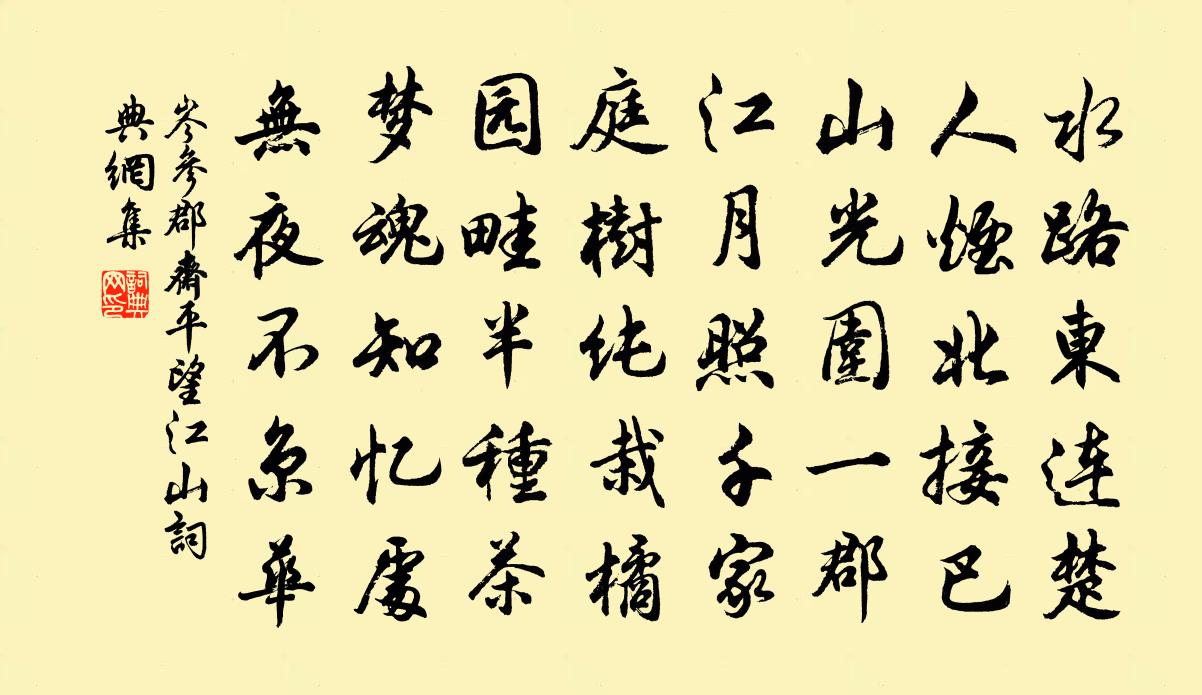 水路東连楚
人煙北接巴
山光圍一郡
江月照千家
庭樹纯栽橘
园畦半種茶
梦魂知忆處
無夜不京華
岑參郡齋平望江山詞
典網集
詞典
网印